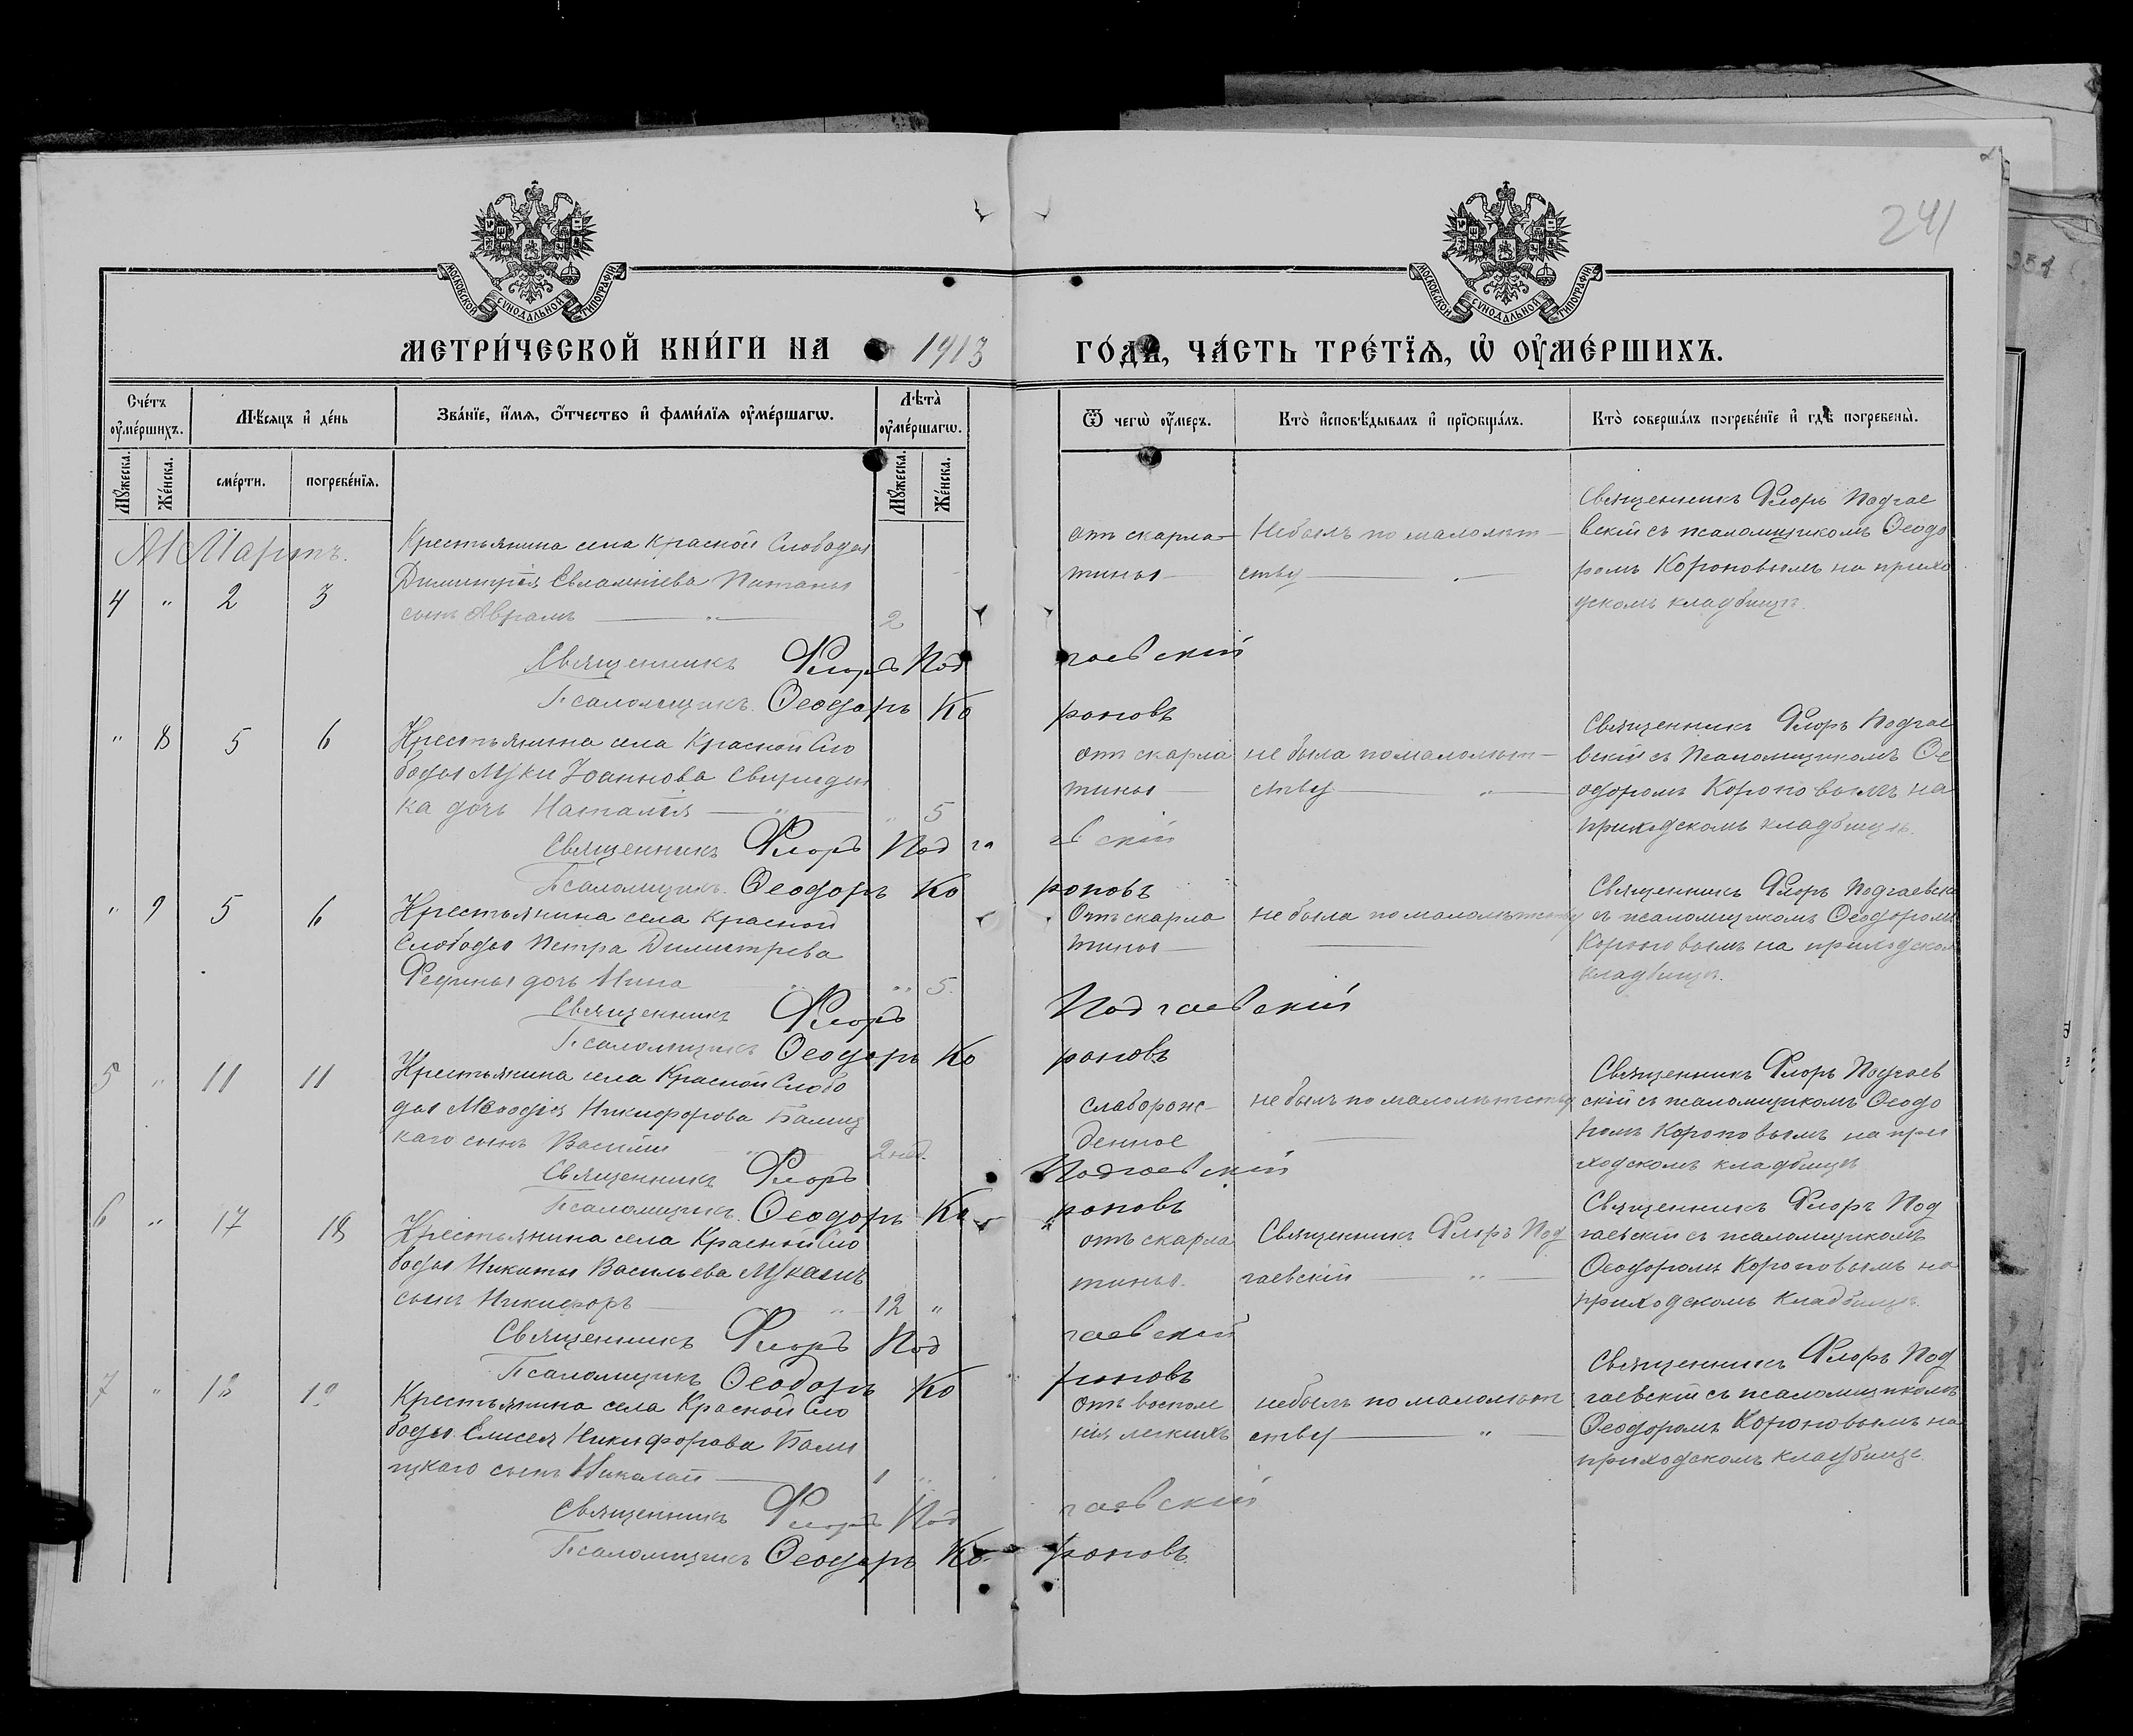 241
МОСКОВСКОЙ СУНОДАЛЬНОЙ ТИПОГРАФІИ
МОСКОВСКОЙ СУНОДАЛЬНОЙ ТИПОГРАФІИ
МЕТРИ́ЧЕСКОЙ КНИ́ГИ НА 1913
ГО́ДА, ЧА́СТЬ ТРЕ́ТЇѦ, Ѡ ОУ҆МЕ́РШИХЪ.
Сче́тъ оу҆ме́ршихъ.
Мѣ́сяцъ и҆ де́нь
Зва́нїе, и҆́мѧ, ѻ҆́тчество и҆ фами́лїѧ оу҆ме́ршагѡ.
Лѣ́та̀ оу҆ме́ршагѡ.
Ѿ чегѡ̀ оу҆́меръ.
Кто̀ и҆сповѣ́дывалъ и҆ прїѡбща́лъ.
Кто̀ соверша́лъ погребе́нїе и҆ гдѣ̀ погребены̀.
Мꙋ́жеска.
Же́нска.
сме́рти.
погребе́нїѧ.
Мꙋ́жеска.
Же́нска.
Мартъ.
4 " 2 3
Крестьянина села Красной Слободы
Димитрія Евлампіева
сынъ Аврамъ — 2
отъ скарла-
тины
Небылъ по малолѣт-
ству
Священникъ Флоръ Подгае
вскій съ псаломщикомъ Ѳеодо
ромъ Короповымъ на прихо
дскомъ кладбищѣ.
Священникъ Флоръ Подгаевскій
Псаломщикъ Ѳеодоръ Короповъ
" 8 5 6
Крестьянина села Красной Сло
боды Луки Іоаннова Свириден
ка дочь Наталія — " 5
отъ скарла
тины
не была по малолѣт-
ству — "
Священникъ Флоръ Подгае
вскій съ Псаломщикомъ Ѳе
одоромъ Короповымъ на
приходскомъ кладбищѣ.
Священникъ Флоръ Подгаевскій
Псаломщикъ Ѳеодоръ Короповъ
" 9 5 6
Крестьянина села Красной
Слободы Петра Димитрева
дочь Нина " 5.
Отъ скарла
тины
не была по малолѣтству
Священникъ Флоръ Подгаевскі
съ псаломщикомъ Ѳеодоромъ
Короповымъ на приходском
кладбищѣ.
Священникъ Флоръ Подгаевскій
Псаломщикъ Ѳеодоръ Короповъ
5 " 11 11
Крестьянина села Красной Слобо
ды Меѳодія Никифорова Балиц
каго сынъ Василій " 2 нед.
слаборож-
денное
не былъ по малолѣтству
Священникъ Флоръ Подгаев
скій съ псаломщикомъ Ѳеодо
ромъ Короповымъ на при
ходскомъ кладбищѣ
Священникъ Флоръ Подгаевскій
Псаломщикъ Ѳеодоръ Короповъ
6 " 17 18
Крестьянина села Красной Сло
боды Никиты Васильева
сынъ Никифоръ — " 12 "
отъ скарла
тины.
Священникъ Флоръ Под
гаевскій "
Священникъ Флоръ Под
гаевскій съ псаломщикомъ
Ѳеодоромъ Короповымъ на
приходскомъ кладбищѣ.
Священникъ Флоръ Подгаевскій
Псаломщикъ Ѳеодоръ Короповъ
7 " 18
Крестьянина села Красной Сло
боды Елисея Никифорова Бали
цкаго сынъ Николай — 1 "
Отъ воспале
нія легкихъ
небылъ по малолѣт
ству — "
Священникъ Флоръ Под
гаевскій съ псаломщикомъ
Ѳеодоромъ Короповымъ на
приходскомъ кладбище
Священникъ Флоръ Подгаевскій
Псаломщикъ Ѳеодоръ Короповъ